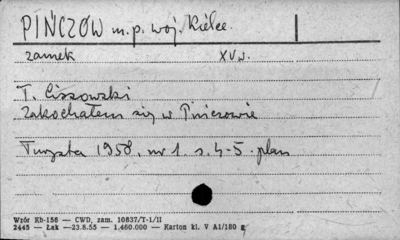 PIŃCZÓW m.p. woj. Kielce
zamek XV w.
T. Lissowski
Zakochałem się w Pińczowie
Turysta 1958, nr 1. s. 4-5. plan
Wzór Kb-156 — CWD, zam. 10837/T-1/II
2445 — Łak —23.8.55 — 1.460.000 — Karton kl. V A1/180 g